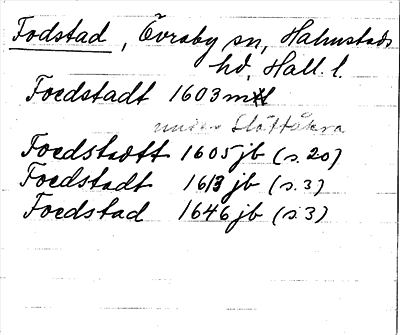 Fodstad, Övraby sn, Halmstads
hd, Hall. l.
Foedstadt 1603 mtl
under Slättåkra
Foedstadtt 1605 jb (s. 20)
Foedstadt 1613 jb (s. 3)
Foedstad 1646 jb (s. 3)